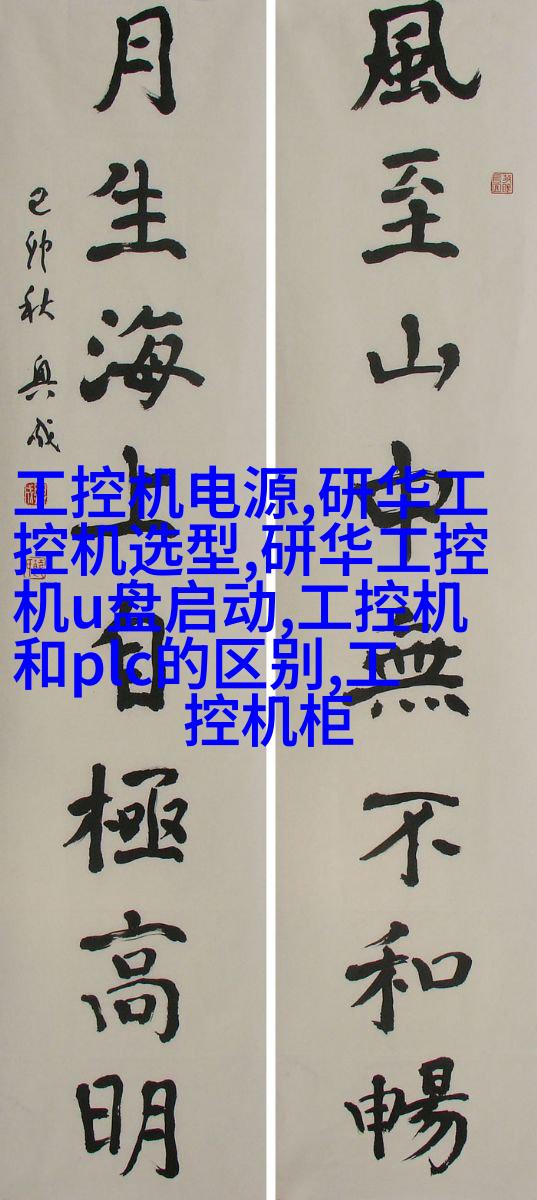 風至山中無不和暢
月生海上自極高明
己卯秋
工控机电源,研华工
控机选型,研华工控
机u盘启动,工控机
和plc的区别,工
控机柜